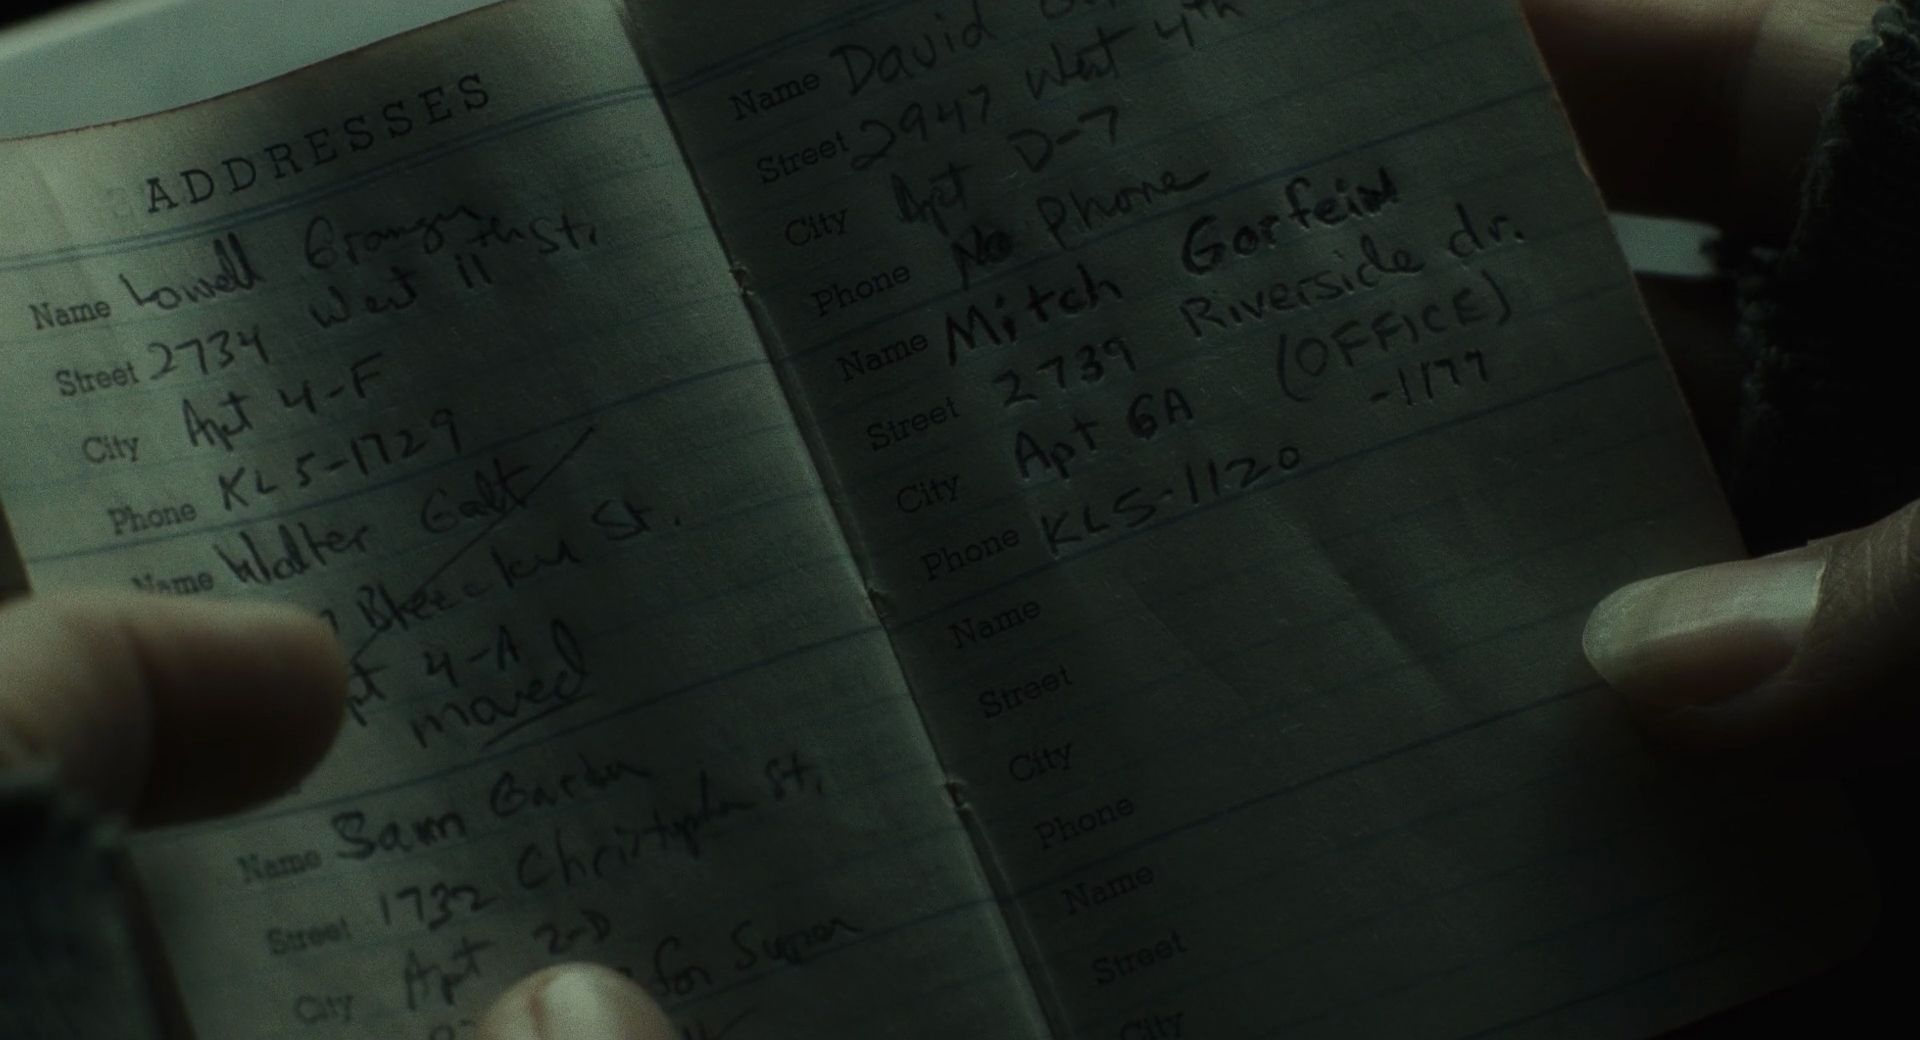 ADDRESSES
Name Lowell
Street 2734 West 11th St.
City Apt 4-F
Phone KL5-1729
Name Walter Galt
Bleecker St.
4-A
moved
Name Sam
Street 1732 Christopher St.
City Apt 2-D
for Super
Name David
Street 2947 West 4th
City Apt D-7
Phone No Phone
Name Mitch Gorfein
Street 2739 Riverside dr.
City Apt 6A (OFFICE)
Phone KL5-1120 -1177
Name
Street
City
Phone
Name
Street
City